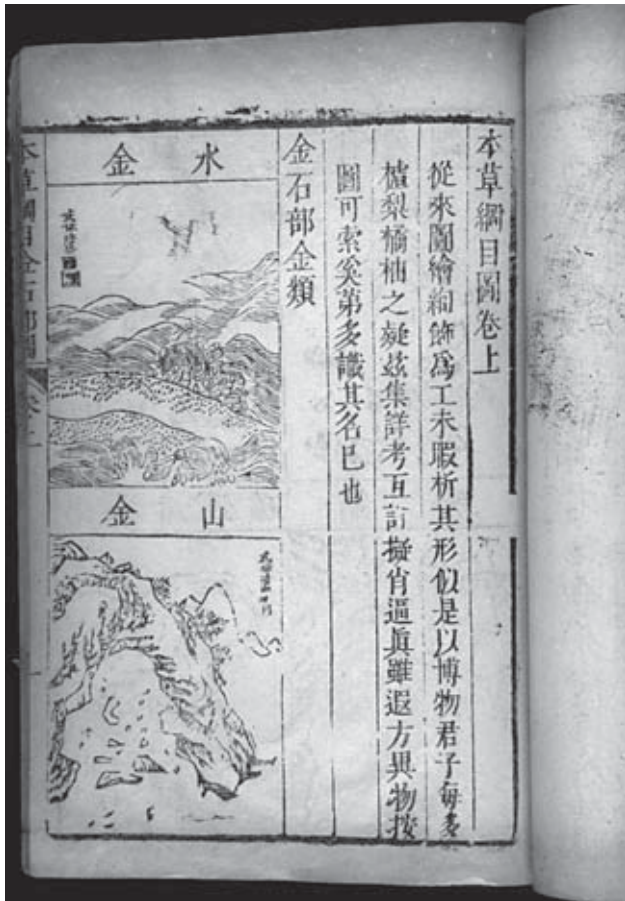 本草綱目圖卷上
從來圖繪絢飾爲工未暇析其形似是以博物君子每多
樝梨橘柚之疑兹集詳考互訂擬肖逼眞雖遐方異物按
圖可索奚第多識其名已也
金石部金類
水金
山金
本草綱目金石部圖 卷上